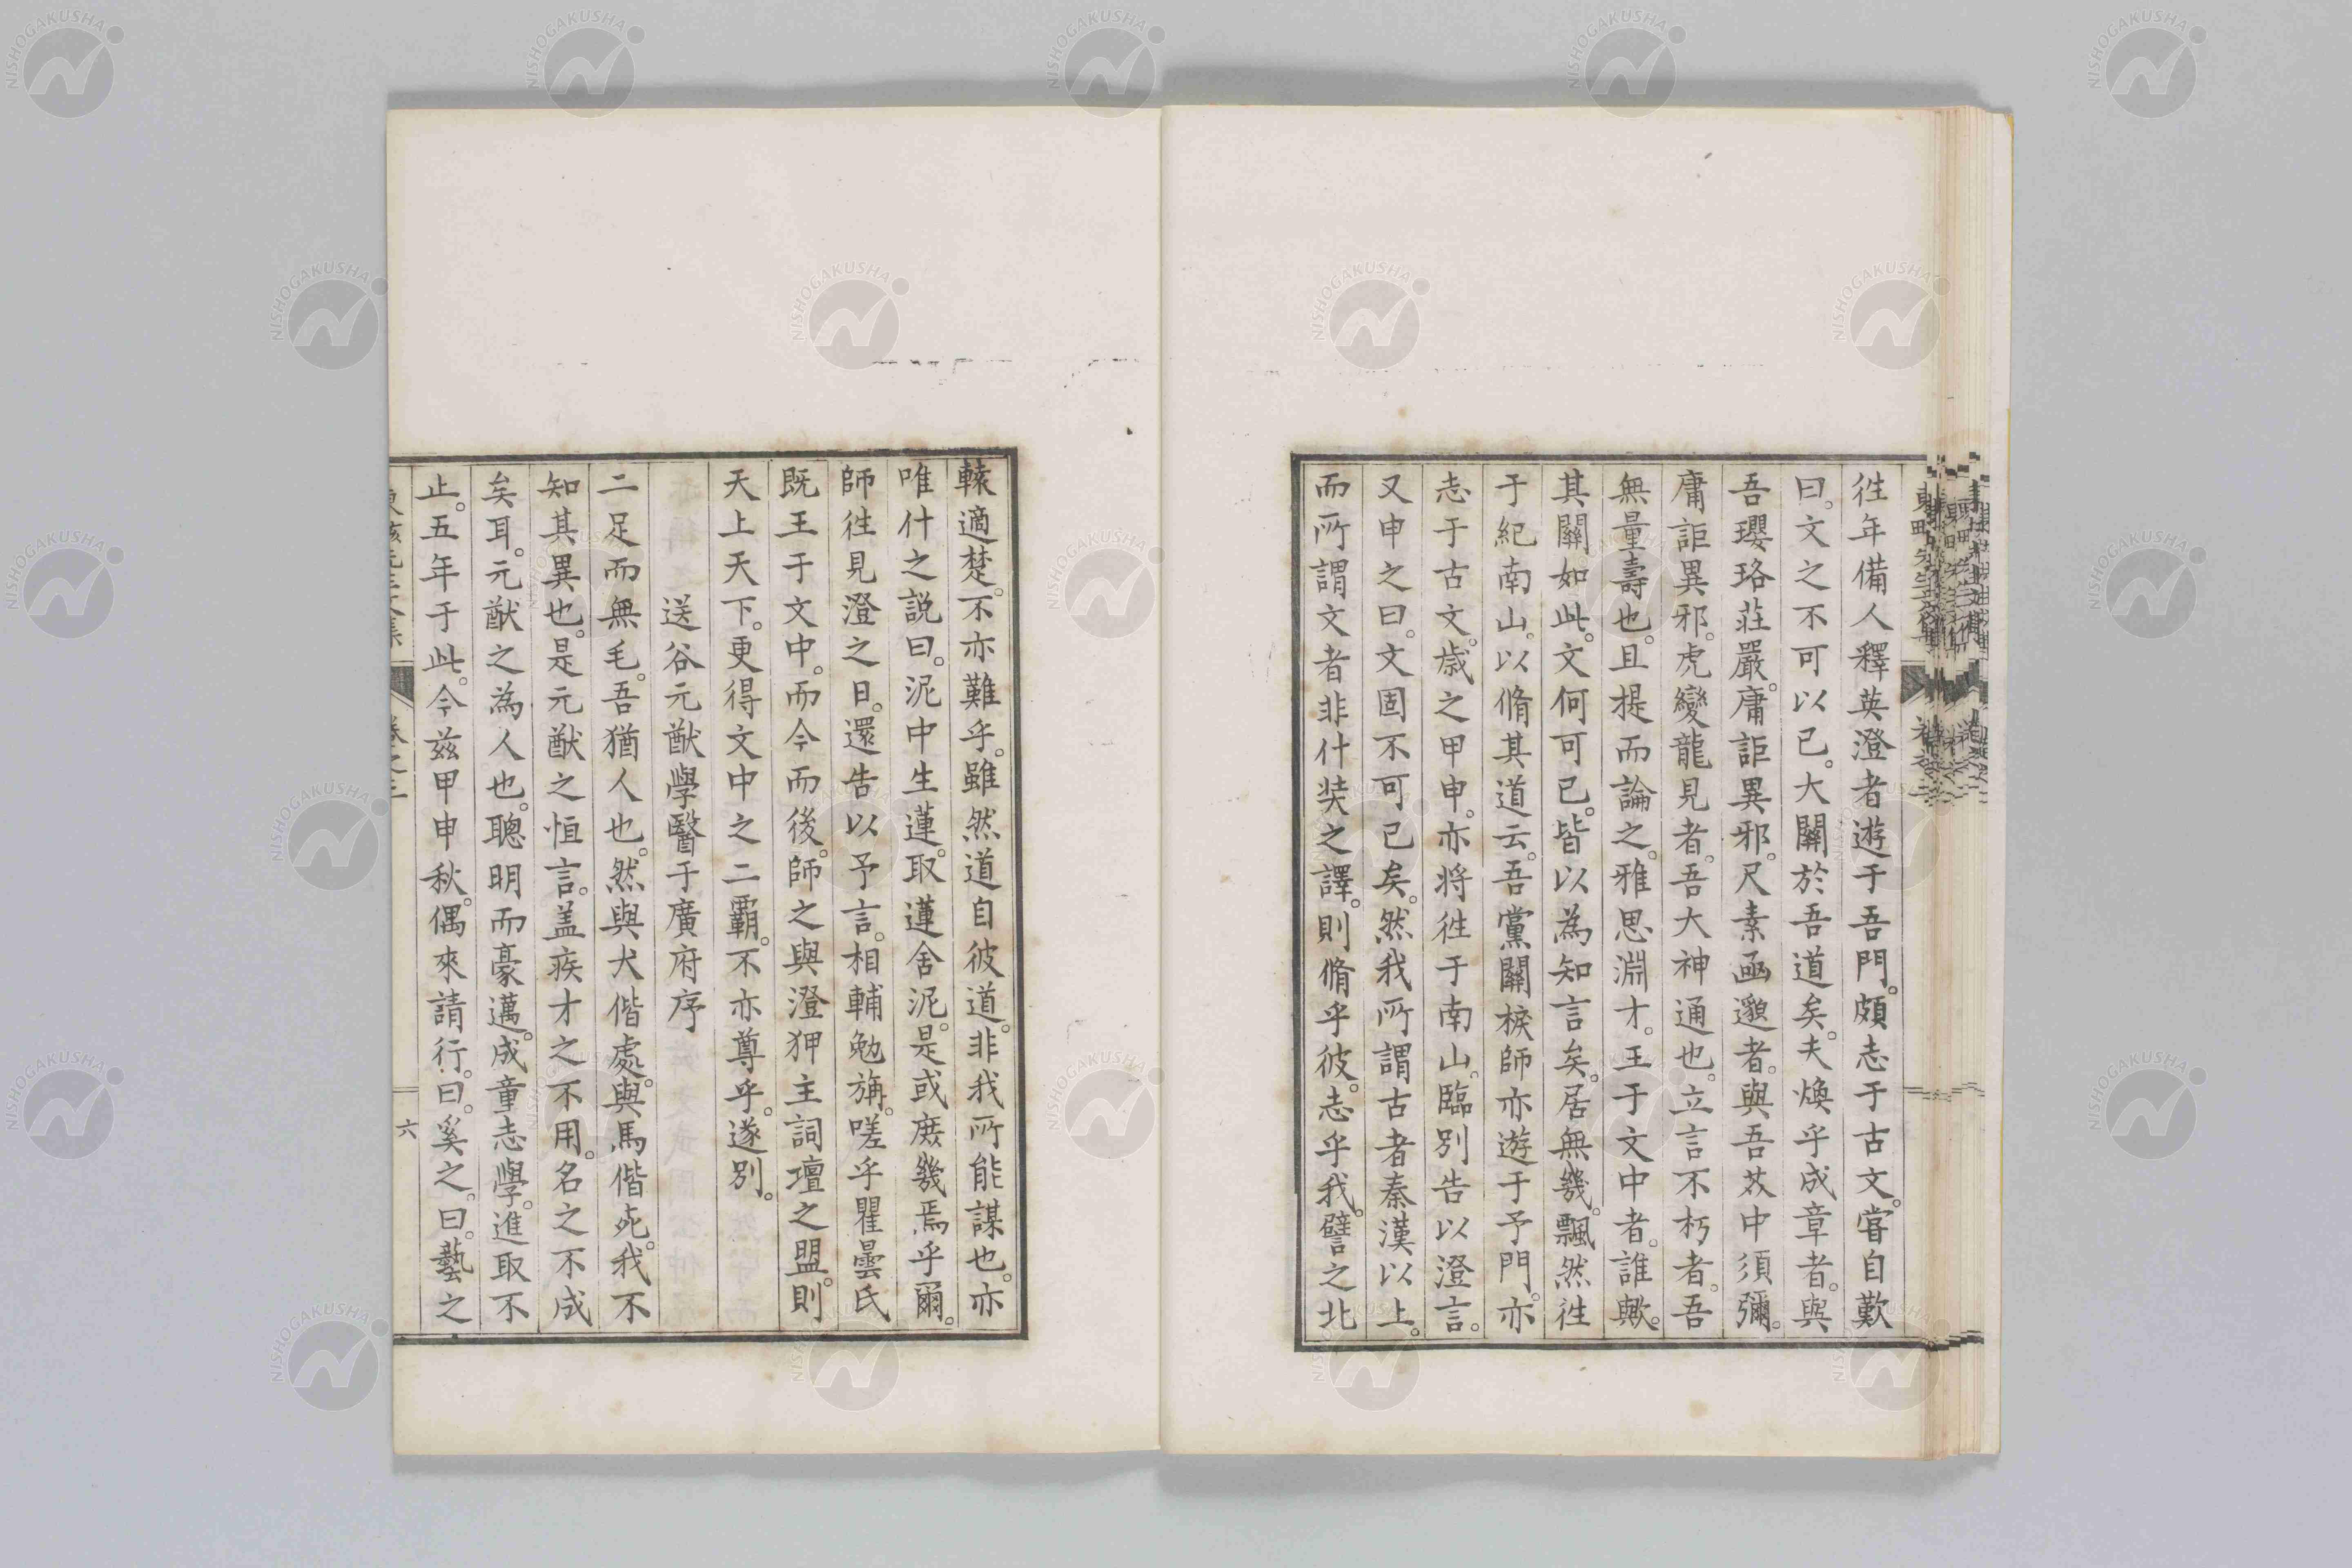 徃年備人釋英澄者遊于吾門。頗志于古文。甞自歎
曰。文之不可以已。大關於吾道矣。夫煥乎成章者。與
吾瓔珞莊嚴。庸詎異邪。尺素函邈者。與吾芥中須彌。
庸詎異邪。虎變龍見者。吾大神通也。立言不朽者。吾
無量壽也。且提而論之。雅思淵才。王于文中者。誰歟。
其關如此。文何可已。皆以為知言矣。居無幾。飄然徃
于紀南山。以脩其道云。吾黨關棙師亦遊于予門。亦
志于古文。歲之甲申。亦將徃于南山。臨別告以澄言。
又申之曰。文固不可已矣。然我所謂古者秦漢以上。
而所謂文者非什裝之譯。則脩乎彼。志乎我。譬之北
轅適楚。不亦難乎。雖然道自彼道。非我所能謀也。亦
唯什之説曰。泥中生蓮。取蓮舍泥。是或庶幾焉乎爾。
師徃見澄之日。還告以予言。相輔勉旃。嗟乎瞿曇氏
既王于文中。而今而後。師之與澄狎主詞壇之盟。則
天上天下。更得文中之二霸。不亦尊乎。遂別。
送谷元猷學醫于廣府序
二足而無毛。吾猶人也。然與犬偕處。與馬偕死。我不
知其異也。是元猷之恒言。盖疾才之不用。名之不成
矣耳。元猷之為人也。聰明而豪邁。成童志學。進取不
止。五年于此。今茲甲申秋。偶來請行。曰。奚之。曰。藝之
卷之三
六
NISHOGAKUSHA